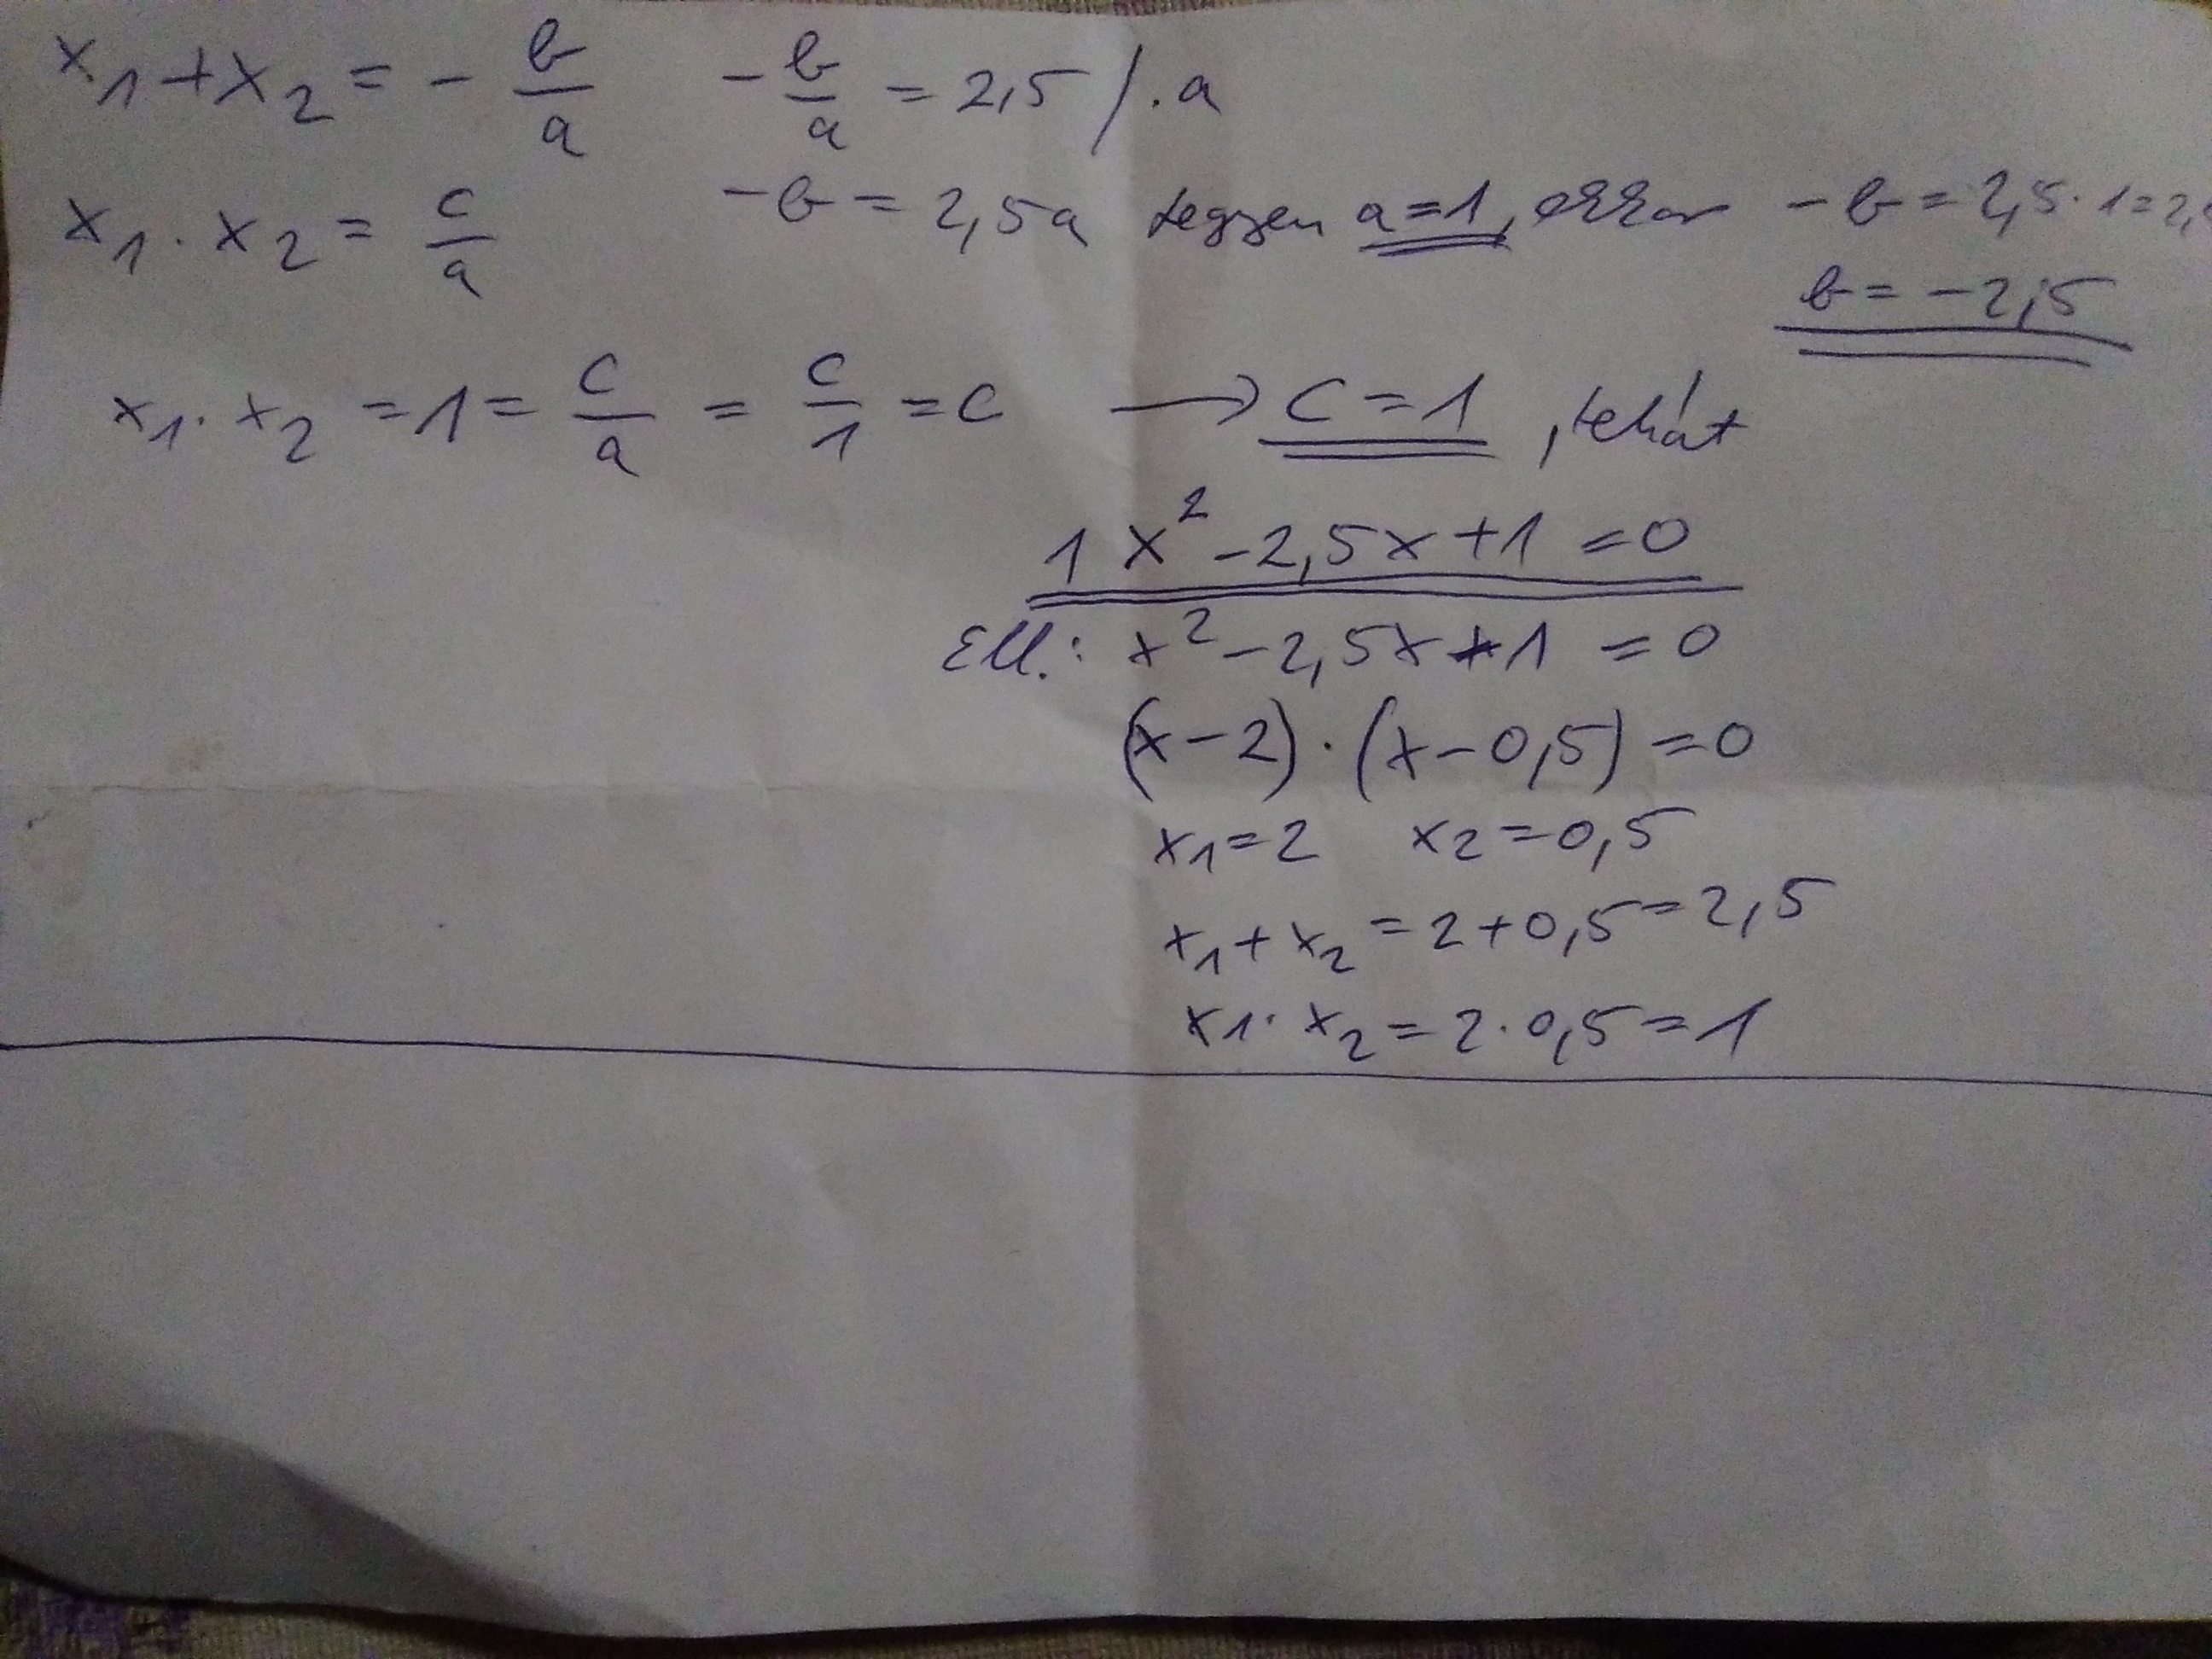 x₁+x₂ = - b/a   - b/a = 2,5 /·a
x₁·x₂ = c/a   -b = 2,5a legyen a=1, ekkor -b = 2,5·1=2,5
b = -2,5
x₁·x₂ = 1 = c/a = c/1 = c → c = 1, tehát
1x² - 2,5x + 1 = 0
Ell.: x² - 2,5x + 1 = 0
(x-2)·(x-0,5) = 0
x₁=2 x₂=0,5
x₁+x₂ = 2+0,5 = 2,5
x₁·x₂ = 2·0,5 = 1